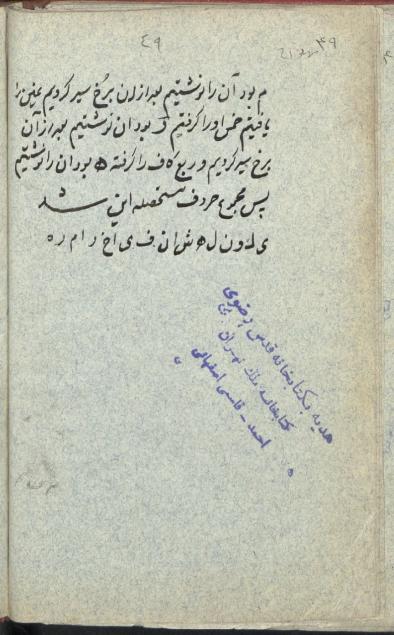 ٤٩ ٣٩
م بود آن را نوشتیم بعد ازان برخ سیر کردیم عین را
یافتیم خمس او را گرفتیم ی بود ان نوشتیم بعد از آن
برخ سیر کردیم و ربع کاف را گرفته ه بود ان را نوشتیم
پس مجموع حروف مستحصله این شد
ی ل و ن ل ه ش ا ن ف ی ا خ ر ا م ر ه
هدیه بکتابخانه قدس رضوی
کتابخانه ملک تهران
احمد - قاسمی اصفهانی